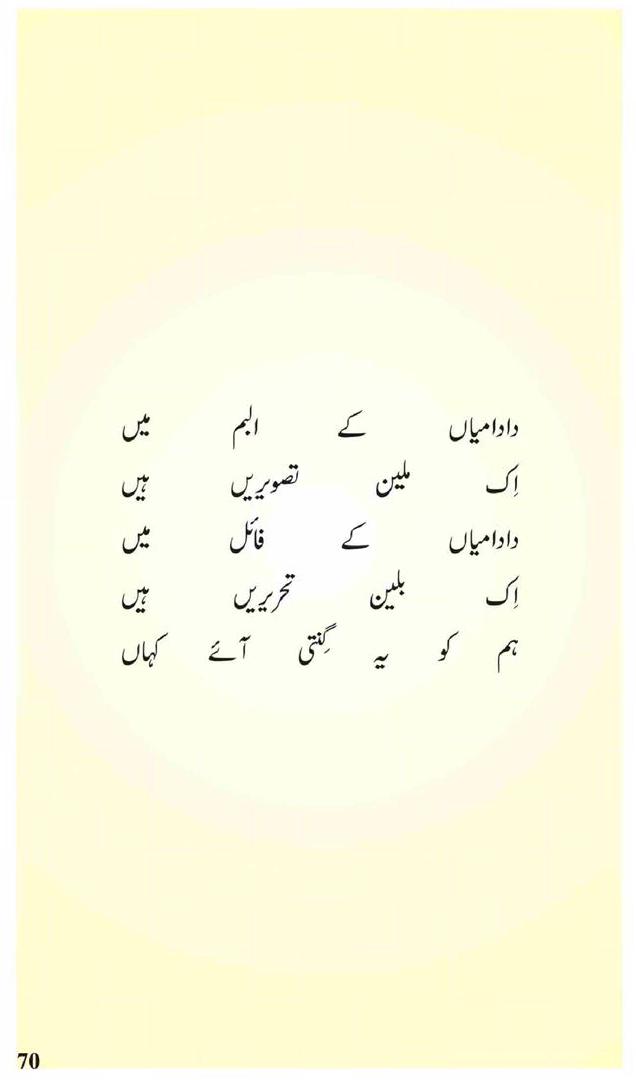 دادامیاں کے البم میں
اِک ملین تصویریں ہیں
دادامیاں کے فائل میں
اِک بلین تحریریں ہیں
ہم کو یہ گِنتی آئے کہاں
70